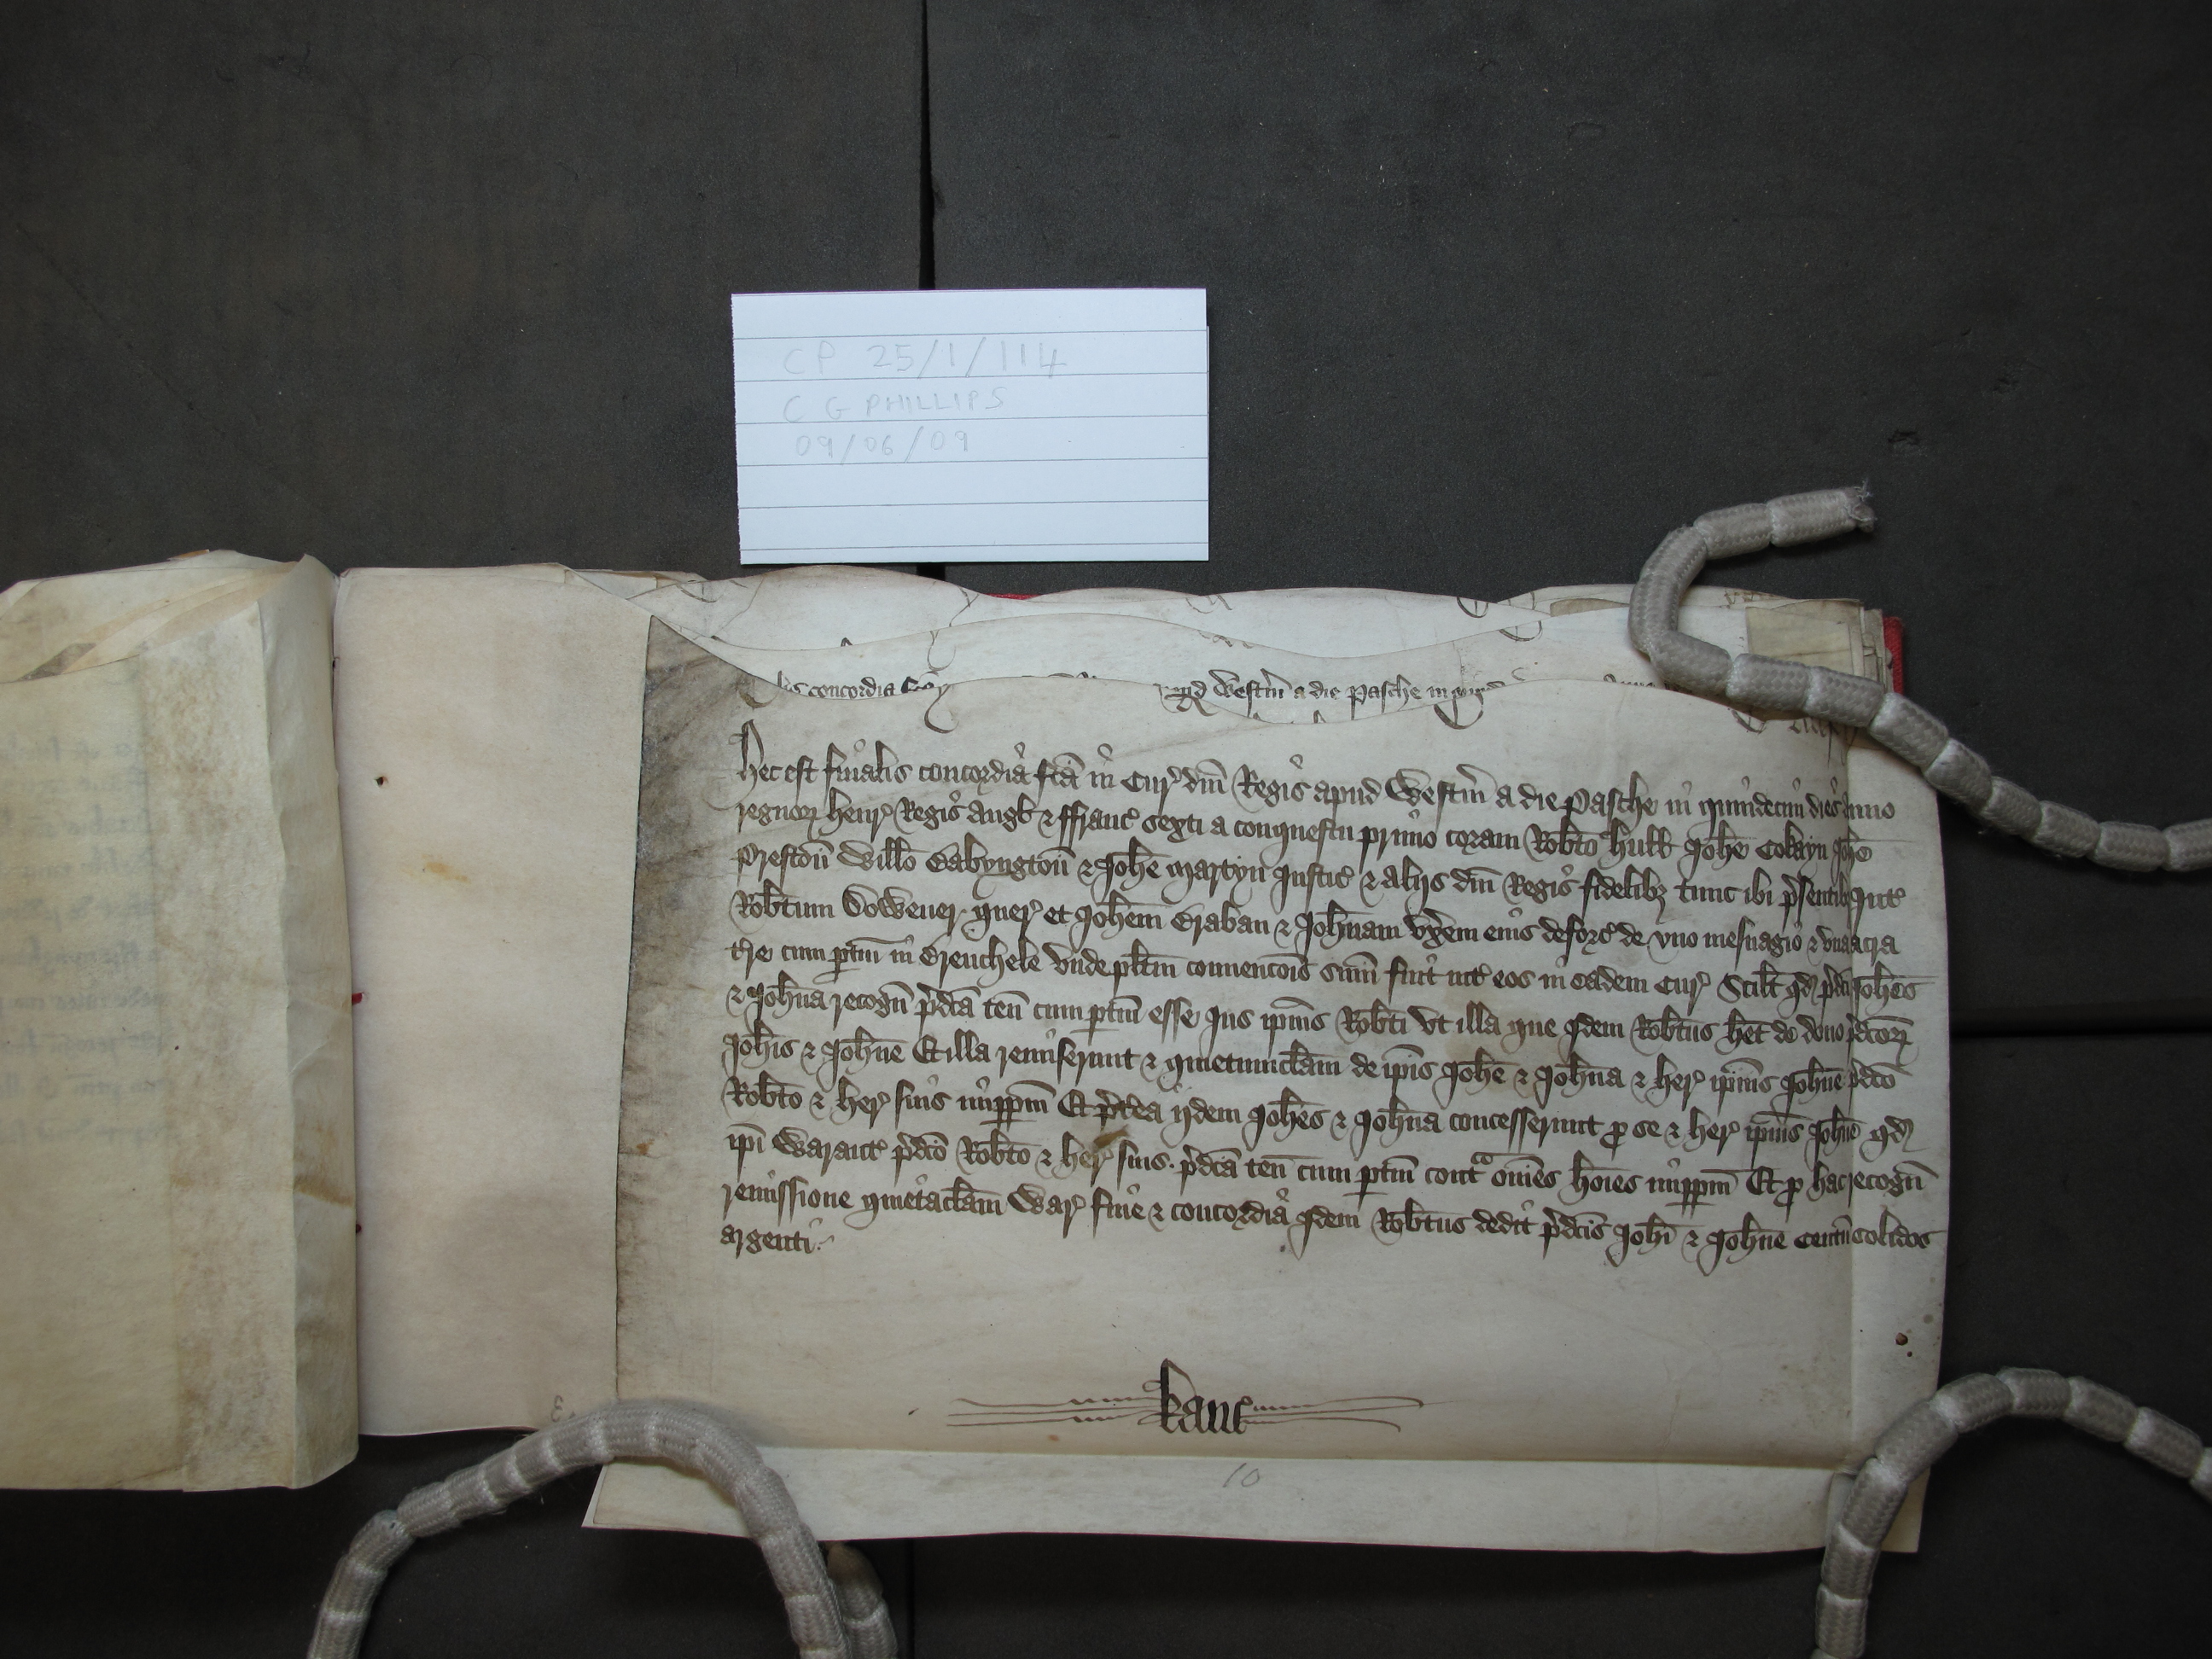 CP 25/1/114
C G PHILLIPS
09/06/09
lis concordia
apud Westm̄ a die Pasche in
Hec est finalis concordia fc̄a in Cur̛ dn̄i Regis apud Westm̄ a die Pasche in quindecim dies Anno
regnor̛ Henr̛ Regis Angƚ & ffranc̛ sexti a conquestu primo coram Rob̄to Hulƚ Joh̄e Cokayn Joh̄e
Preston̄ Will̄o Babyngton̄ & Joh̄e Martyn Justic̛ & alijs dn̄i Regis fidelibꝫ tunc ibi p̄sentibꝫ Int̛
Rob̄tum Doweuer quer̛ et Joh̄em Braban & Joh̄nam vx̄em eius deforc̛ de vno mesuagio & vna acra
t̄re cum ptin̄ in Brenchele vnde pl̄itm conuenc̄ois sum̄ fuit int̛ eos in eadem Cur̛ Scilƚ qd̛ p̄dc̄i Joh̄es
& Joh̄na recogn̄ p̄dc̄a ten̄ cum ptin̄ esse Jus ip̄ius Rob̄ti vt illa que Idem Rob̄tus h̄et de dono p̄dc̄or̛
Joh̄is & Joh̄ne Et illa remiserunt & quietumclam̄ de ip̄is Joh̄e & Joh̄na & her̛ ip̄ius Joh̄ne p̄dc̄o
Rob̄to & her̛ suis imppm̄ Et p̄terea ijdem Joh̄es & Joh̄na concesserunt ꝓ se & her̛ ip̄ius Joh̄ne qd̛
ip̄i Warant̛ p̄dc̄o Rob̄to & her̛ suis p̄dc̄a ten̄ cum ptin̄ contᵃ om̄es ho̅ies imppm̄ Et ꝓ hac recogn̄
remissione quietaclam̄ War̛ fine & concordia Idem Rob̄tus dedit p̄dc̄is Joh̄i & Joh̄ne centum solidos
argenti
Kanc̛
10